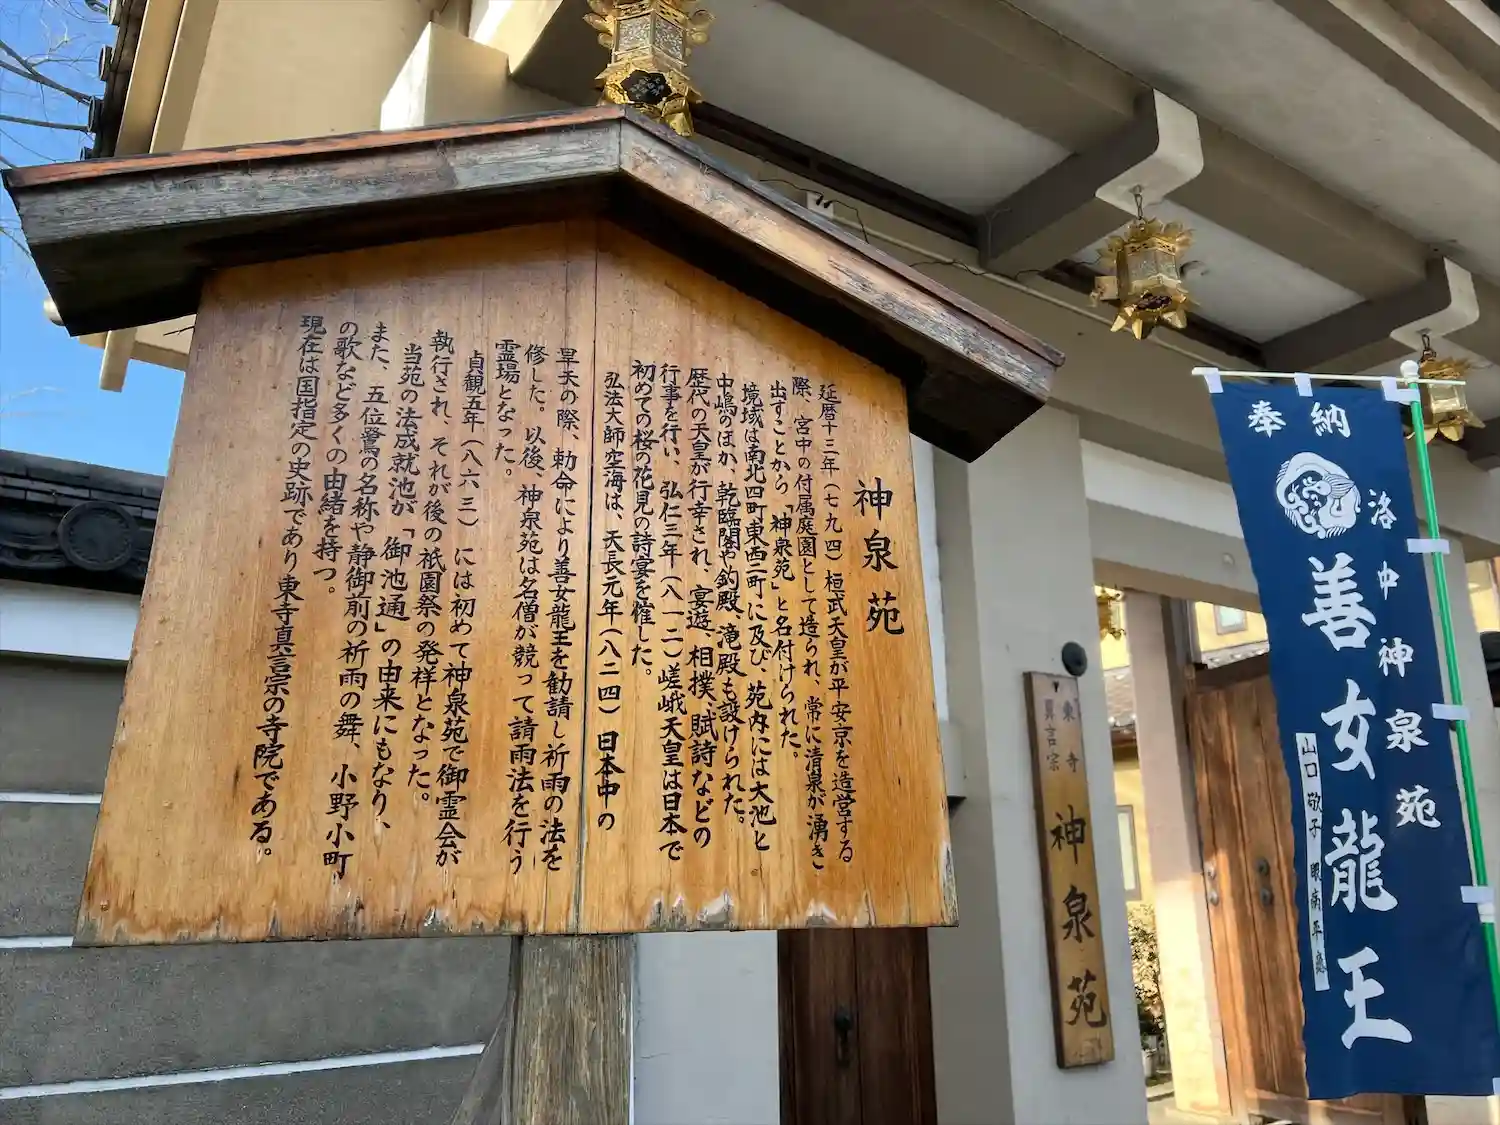 神泉苑
延暦十三年（七九四）桓武天皇が平安京を造営する
際、宮中の付属庭園として造られ、常に清泉が湧き
出すことから「神泉苑」と名付けられた。
境域は南北四町東西二町に及び、苑内には大池と
中嶋のほか、乾臨閣や釣殿、滝殿も設けられた。
歴代の天皇が行幸され、宴遊、相撲、賦詩などの
行事を行い、弘仁三年（八一二）嵯峨天皇は日本で
初めての桜の花見の詩宴を催した。
弘法大師空海は、天長元年（八二四）日本中の
旱天の際、勅命により善女龍王を勧請し祈雨の法を
修した。以後、神泉苑は名僧が競って請雨法を行う
霊場となった。
貞観五年（八六三）には初めて神泉苑で御霊会が
執行され、それが後の祇園祭の発祥となった。
当苑の法成就池が「御池通」の由来にもなり、
また、五位鷺の名称や静御前の祈雨の舞、小野小町
の歌など多くの由緒を持つ。
現在は国指定の史跡であり東寺真言宗の寺院である。
東寺
真言宗
神泉苑
奉納
洛中神泉苑
善女龍王
山口敬子 眼病平癒